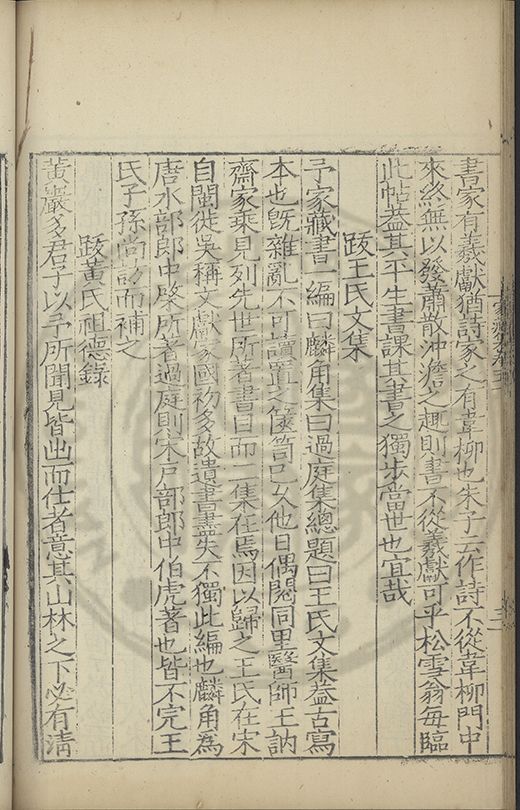 書家有羲獻猶詩家之有韋柳也朱子云作詩不從韋柳門中
來終無以發蕭散沖澹之趣則書不從羲獻可乎松雪翁每臨
此帖葢其平生書課其書之獨步當世也宜哉
跋王氏文集
予家藏書一編曰麟角集曰過庭集總題曰王氏文集葢古寫
本也旣雜亂不可讀置之篋笥已久他日偶閱同里醫師王訥
齋家乘見列先世所著書目而二集在焉因以歸之王氏在宋
自閩徙吳稱文獻家國初多故遺書盡失不獨此編也麟角爲
唐水部郎中棨所著過庭則宋戸部郎中伯虎著也皆不完王
氏子孫尚訪而補之
跋黃氏祖德錄
黃巖多君子以予所聞見皆出而仕者意其山林之下必有淸